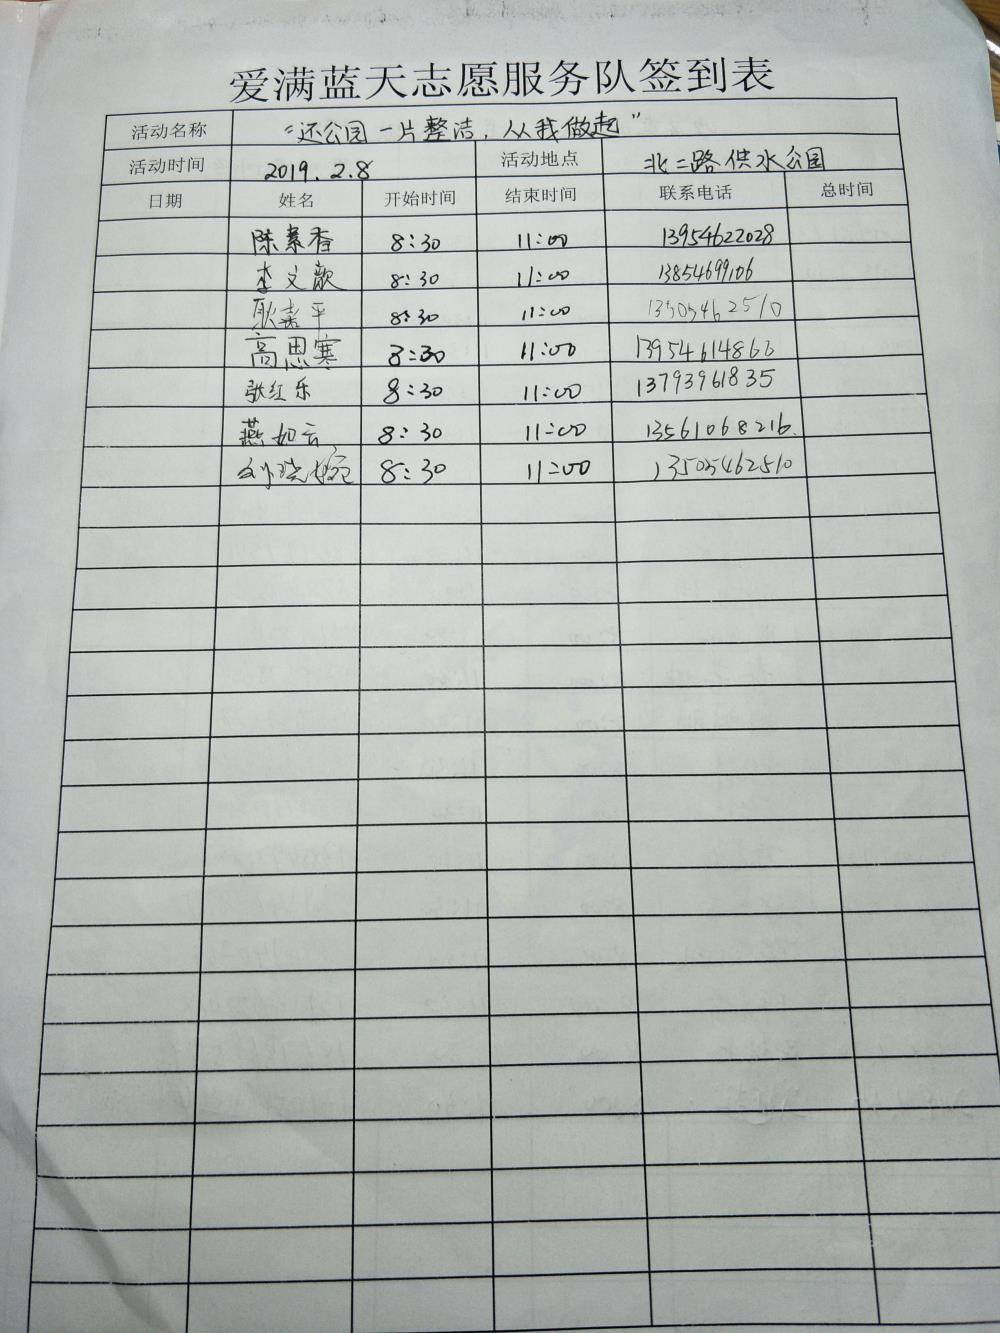 爱满蓝天志愿服务队签到表
活动名称 “还公园一片整洁，从我做起”
活动时间 2019.2.8 活动地点 北二路供水公园
日期 姓名 开始时间 结束时间 联系电话 总时间
陈素香 8:30 11:00 13954622028
李文歆 8:30 11:00 13854699106
耿嘉平 8:30 11:00 13505462510
高思寒 8:30 11:00 13954614866
张红乐 8:30 11:00 13793961835
燕如云 8:30 11:00 13561068216.
刘晓婉 8:30 11:00 13505462510